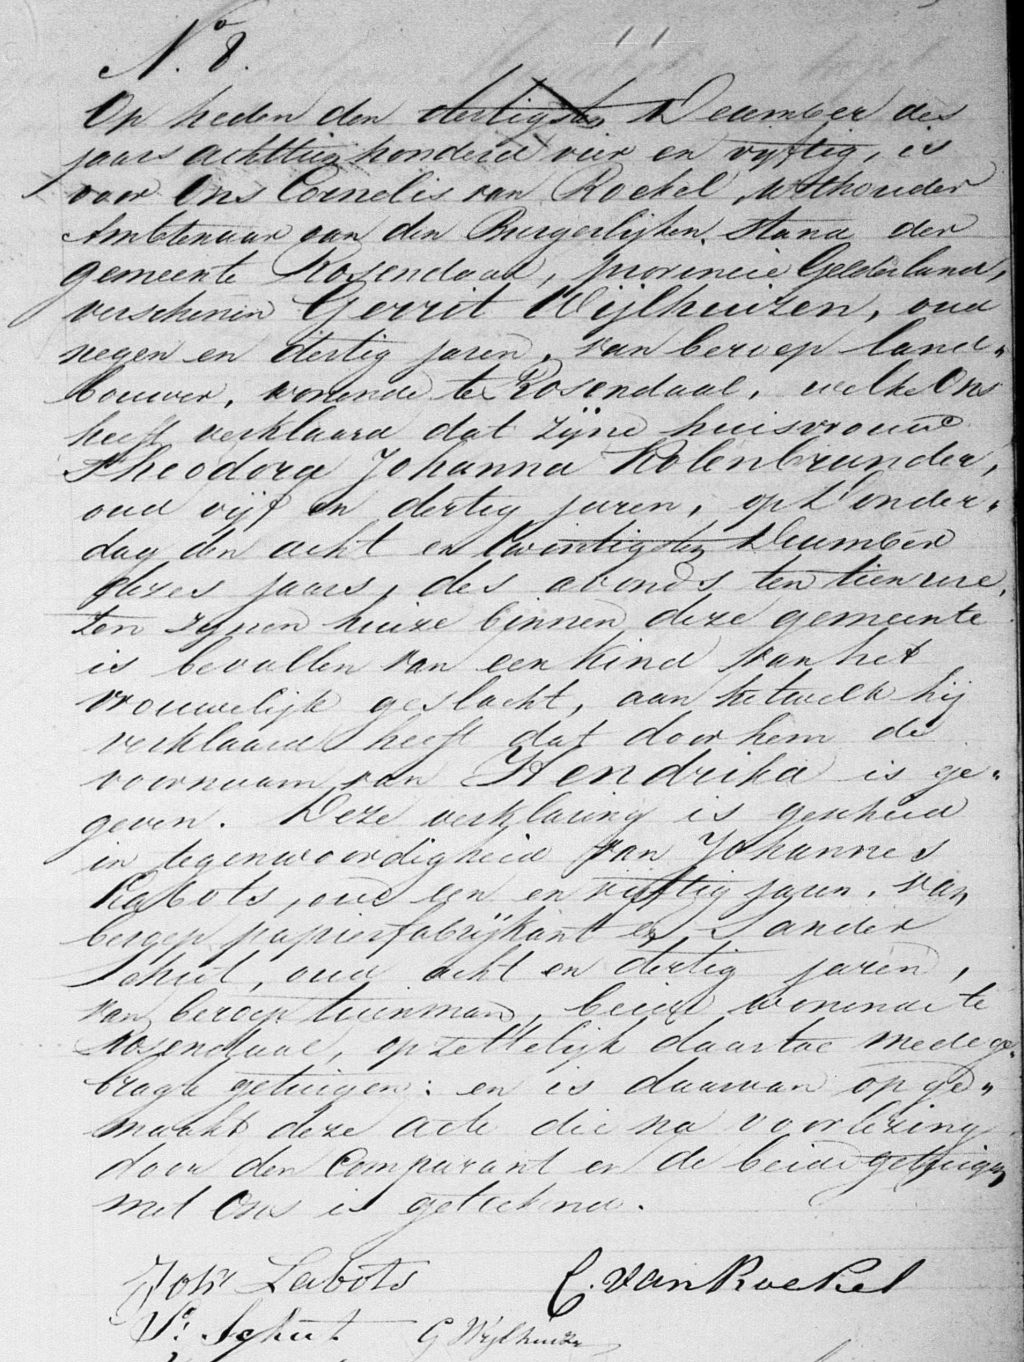 N.o 8.
Op heden den dertigsten December des
jaars achttienhonderd vier en vyftig, is
voor Ons Cornelis van Roekel, Wethouder
Ambtenaar van den Burgerlijken Stand der
gemeente Rosendaal, provincie Gelderland,
verschenen Gerrit Wijlhuizen, oud
negen en dertig jaren, van beroep land-
bouwer, wonende te Rosendaal, welke Ons
heeft verklaard dat zijne huisvrouw
Theodora Johanna Kolenbrander,
oud vijf en dertig jaren, op Donder-
dag den acht en twintigsten December
dezes jaars, des avonds ten tien ure,
ten zynen huize binnen deze gemeente
is bevallen van een kind van het
vrouwelijk geslacht, aan hetwelk hij
verklaard heeft dat door hem de
voornaam van Hendrika is ge-
geven. Deze verklaring is geschied
in tegenwoordigheid van Johannes
Labots, oud een en vijftig jaren, van
beroep papierfabrijkant en Sander
Schut, oud acht en dertig jaren,
van beroep tuinman, beide wonende te
Rosendaal, opzettelijk daartoe medege-
bragte getuigen: en is daarvan opge-
maakt deze acte die na voorlezing
door den Comparant en de beide getuigen
met Ons is geteekend.
Johs Labots C. van Roekel
Sr. Schut G Wijlhuizen